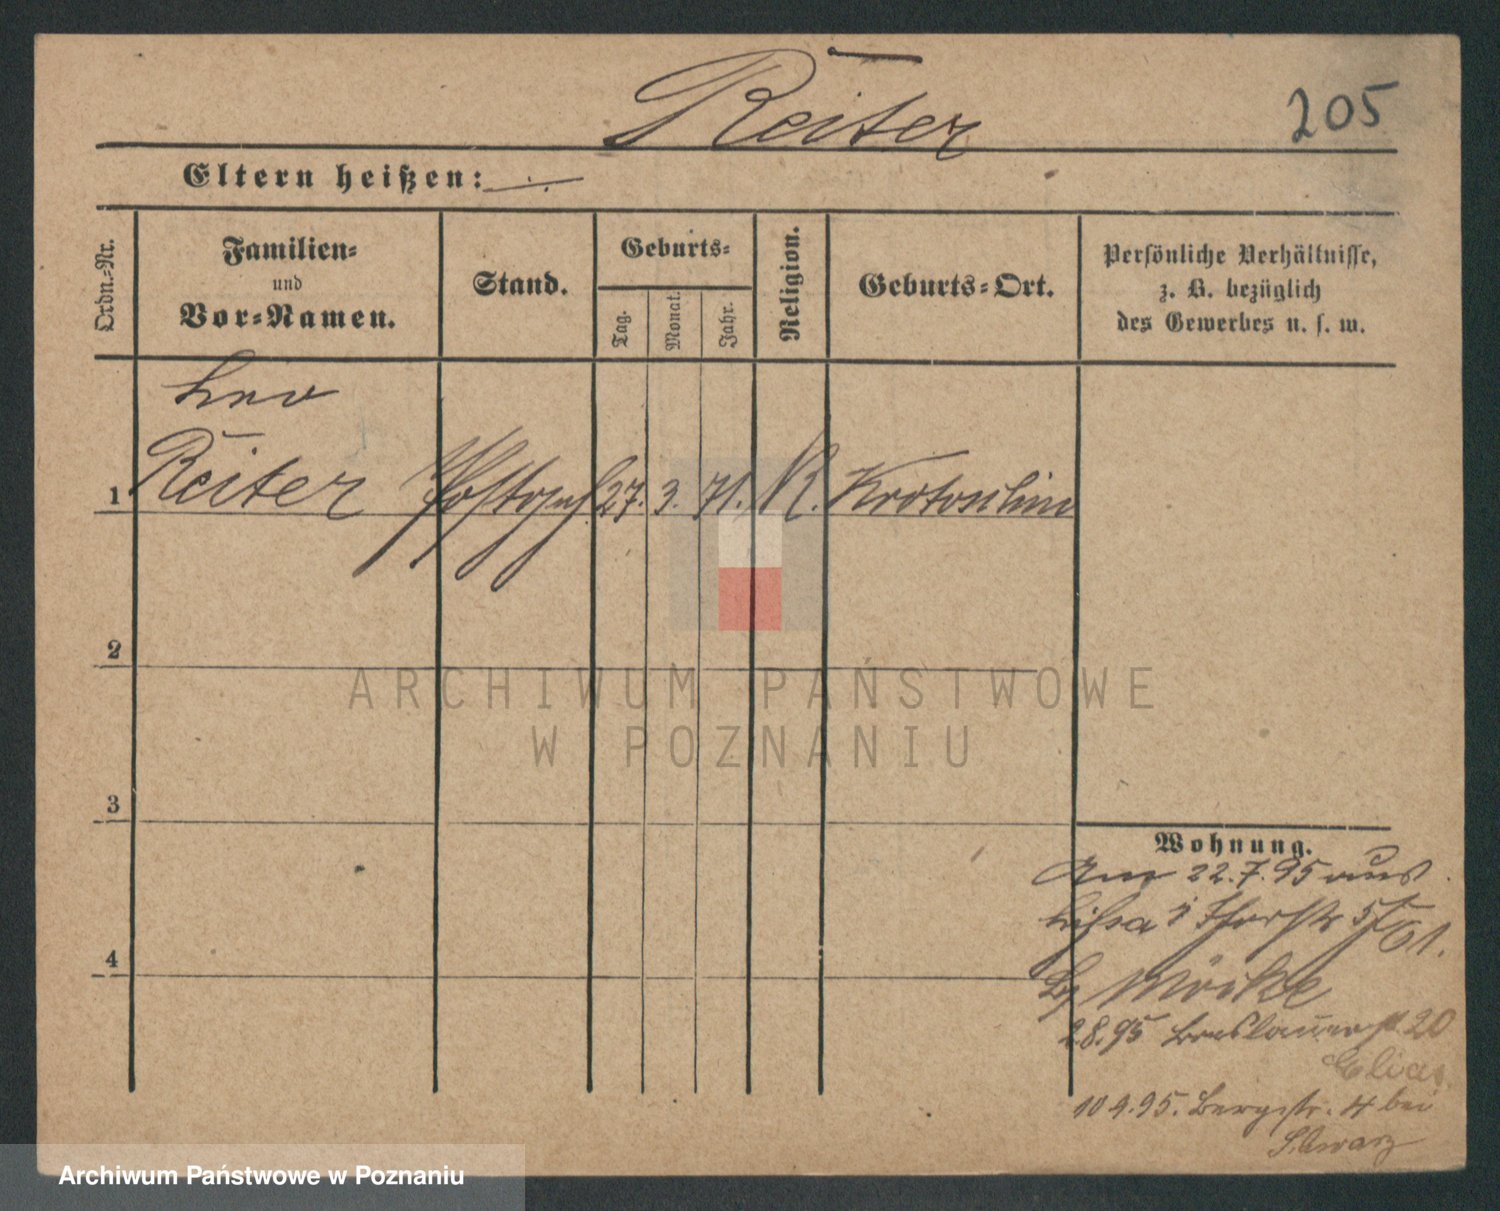 Reiter
205
Eltern heißen:
Ordn.-Nr.
Familien-
und
Vor-Namen.
Stand.
Geburts-
Tag.
Monat.
Jahr.
Religion.
Geburts-Ort.
Persönliche Verhältnisse,
z. B. bezüglich
des Gewerbes u. s. w.
Leo
1 Reiter 27. 3. 71. K. Krotoschin
2
3
4
ARCHIWUM PAŃSTWOWE
W POZNANIU
Wohnung.
Am 22.7.95 aus
Lissa 5/61.
2.8.95 Breslauerst 20
Elias.
10 9.95. Bergstr. 4 bei
Schwarz
Archiwum Państwowe w Poznaniu